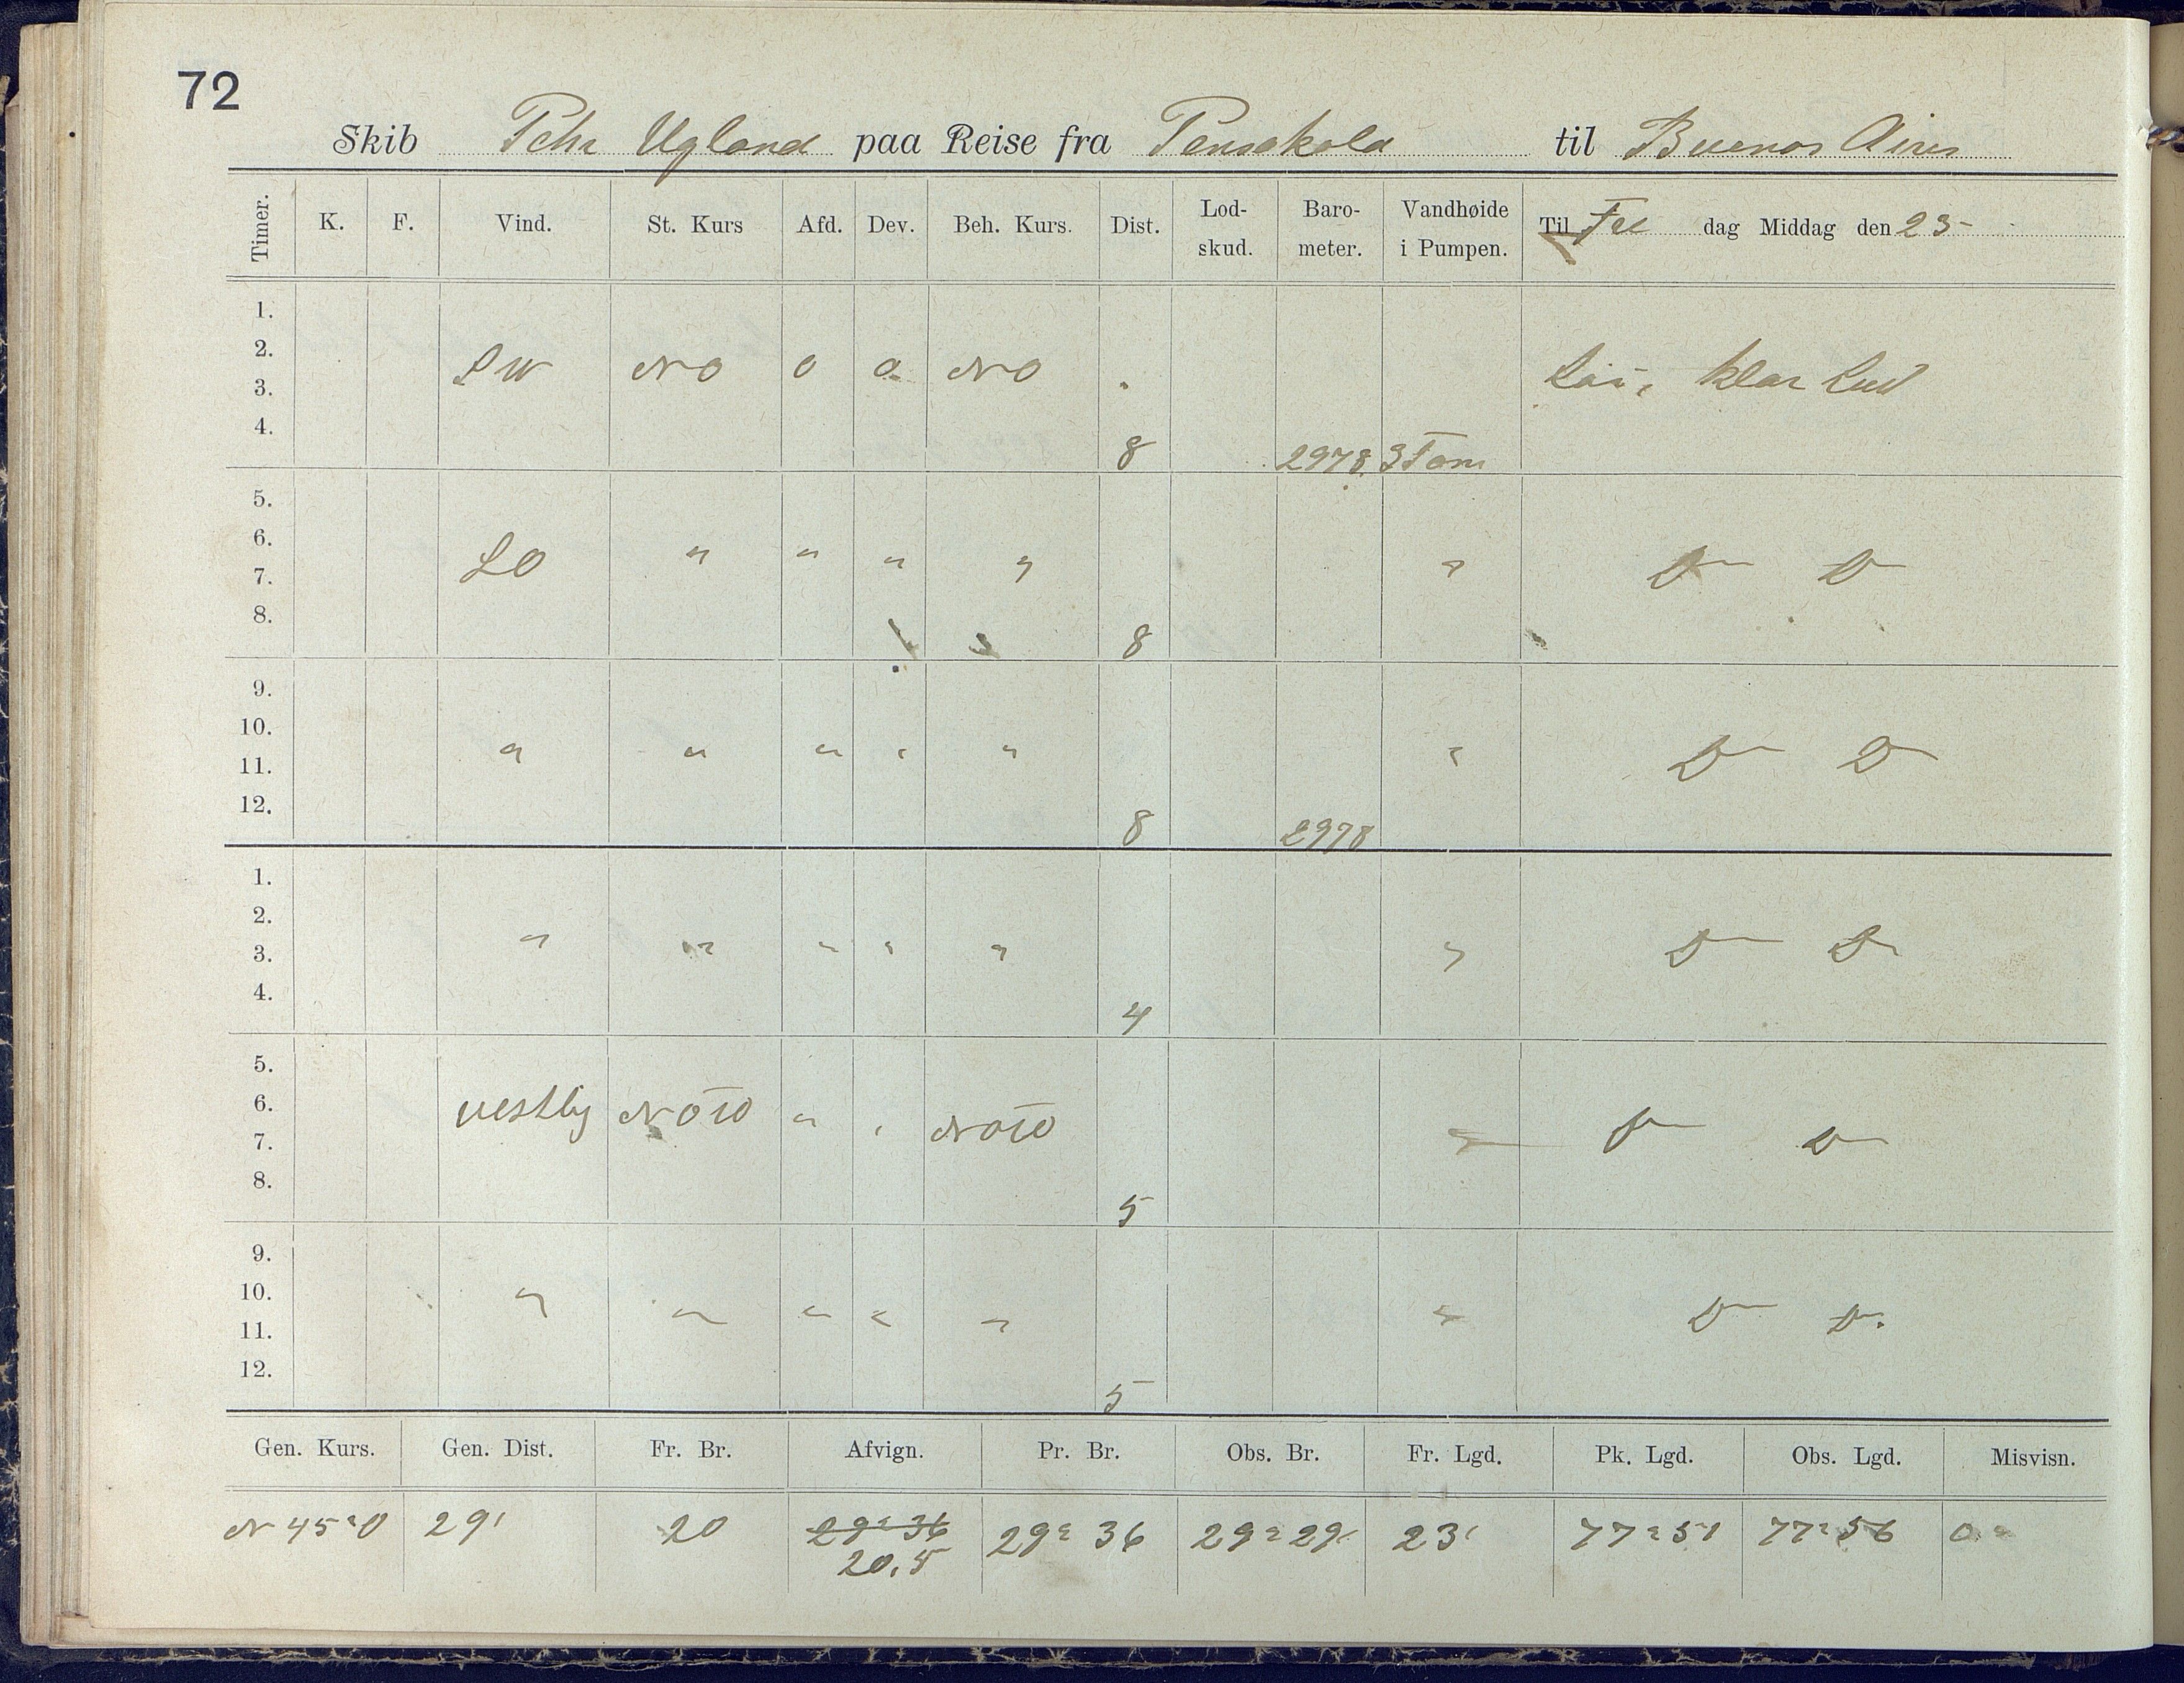 72
Skib Pehr Ugland paa Reise fra Pensakola til Buenos Aires
Timer. K. F. Vind. St. Kurs Afd. Dev. Beh. Kurs. Dist. Lod-skud. Baro-meter. Vandhøide i Pumpen. Til Fre dag Middag den 23
1.
2. SW NO 0 0 NO klar
3.
4. 8 2978 3 Tom
5.
6. SO " " " " " Do Do
7.
8. 8
9.
10. " " " " " " Do Do
11.
12. 8 2978
1.
2.
3. " " " " " " Do Do
4. 4
5.
6. vestlig NOtO " " NOtO " Do Do
7.
8. 5
9.
10. " " " " " " Do Do
11.
12. 5
Gen. Kurs. Gen. Dist. Fr. Br. Afvign. Pr. Br. Obs. Br. Fr. Lgd. Pk. Lgd. Obs. Lgd. Misvisn.
N 45° O 29' 20 29° 36 29° 36 29° 29' 23' 77° 51 77° 56 0°
20,5